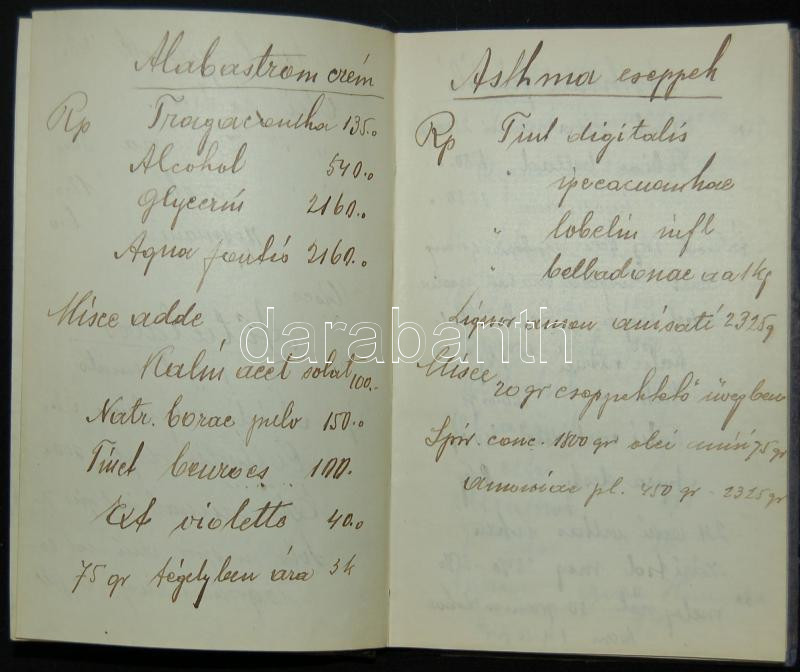 Alabastrom crém
Rp Tragacantha 135.0
Alcohol 540.0
Glycerin 2160.0
Aqua fontió 2160.0
Misce adde
Kalin acet solut 100.-
Natr. borac pulv 150.0
Tinct benzoes 100.
Ext violette 40.0
75 gr tégelyben ára 3k
Asthma cseppek
Rp Tinct digitalis
" ipecacuanhae
" lobelin infl
" belladonae aa 1 kg
Liquor amon anisati 2325g
Misce 20 gr cseppentető üvegben
Spir. conc. 1800 gr olei anisi 75 gr
amoniac pl. 450 gr - 2325 gr
darabanth